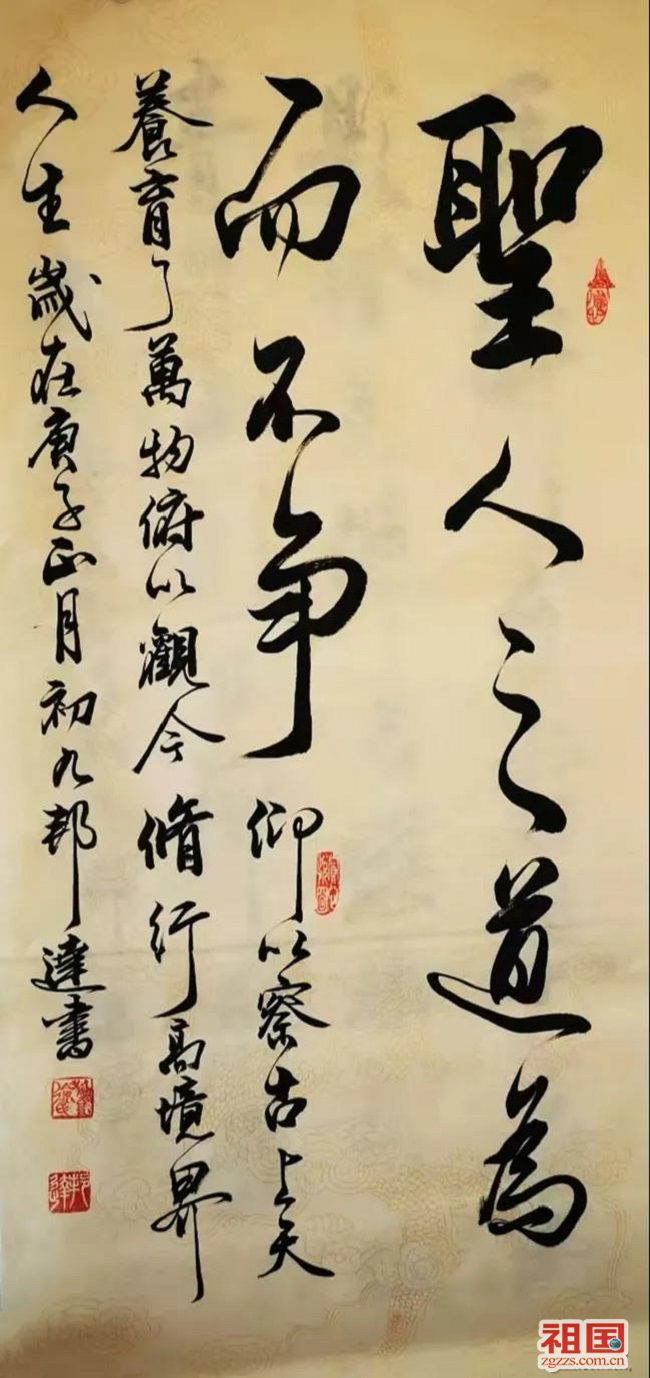 聖人之道為
而不争
仰以察古上天
養育了萬物俯以觀今脩行高境界
人生歲在庚子正月初九邦達書
邦達
祖国
zgzzs.com.cn